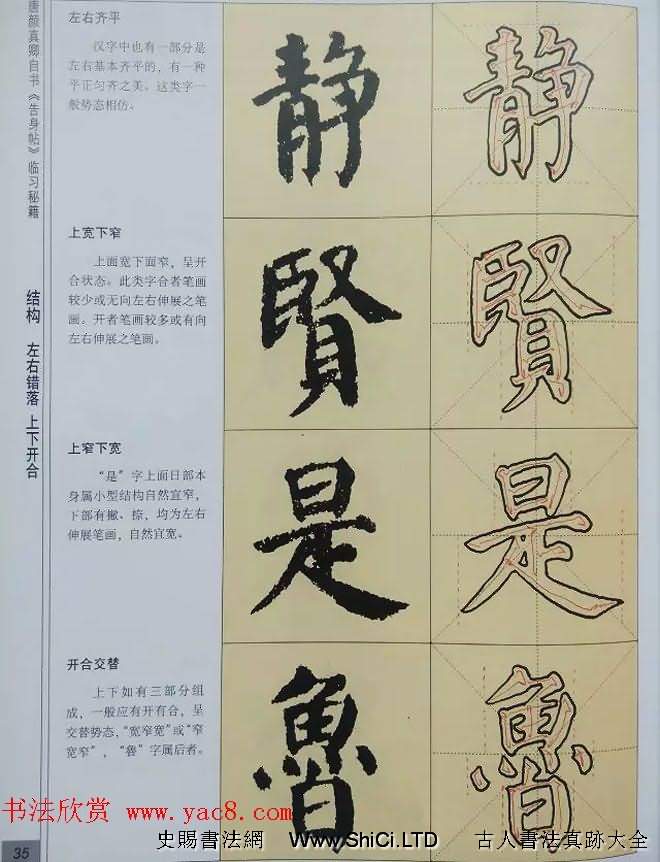 唐颜真卿自书《告身帖》临习秘籍
结构 左右错落 上下开合
左右齐平
汉字中也有一部分是
左右基本齐平的，有一种
平正匀齐之美。这类字一
般势态相仿。
静 静
上宽下窄
上面宽下面窄，呈开
合状态。此类字合者笔画
较少或无向左右伸展之笔
画。开者笔画较多或有向
左右伸展之笔画。
賢 賢
上窄下宽
“是”字上面日部本
身属小型结构自然宜窄，
下部有撇、捺，均为左右
伸展笔画，自然宜宽。
是 是
开合交替
上下如有三部分组
成，一般应有开有合，呈
交替势态，“宽窄宽”或“窄
宽窄”，“魯”字属后者。
魯 魯
书法欣赏 www.yac8.com
35
史賜書法網 Www.ShiCi.LTD 古人書法真跡大全